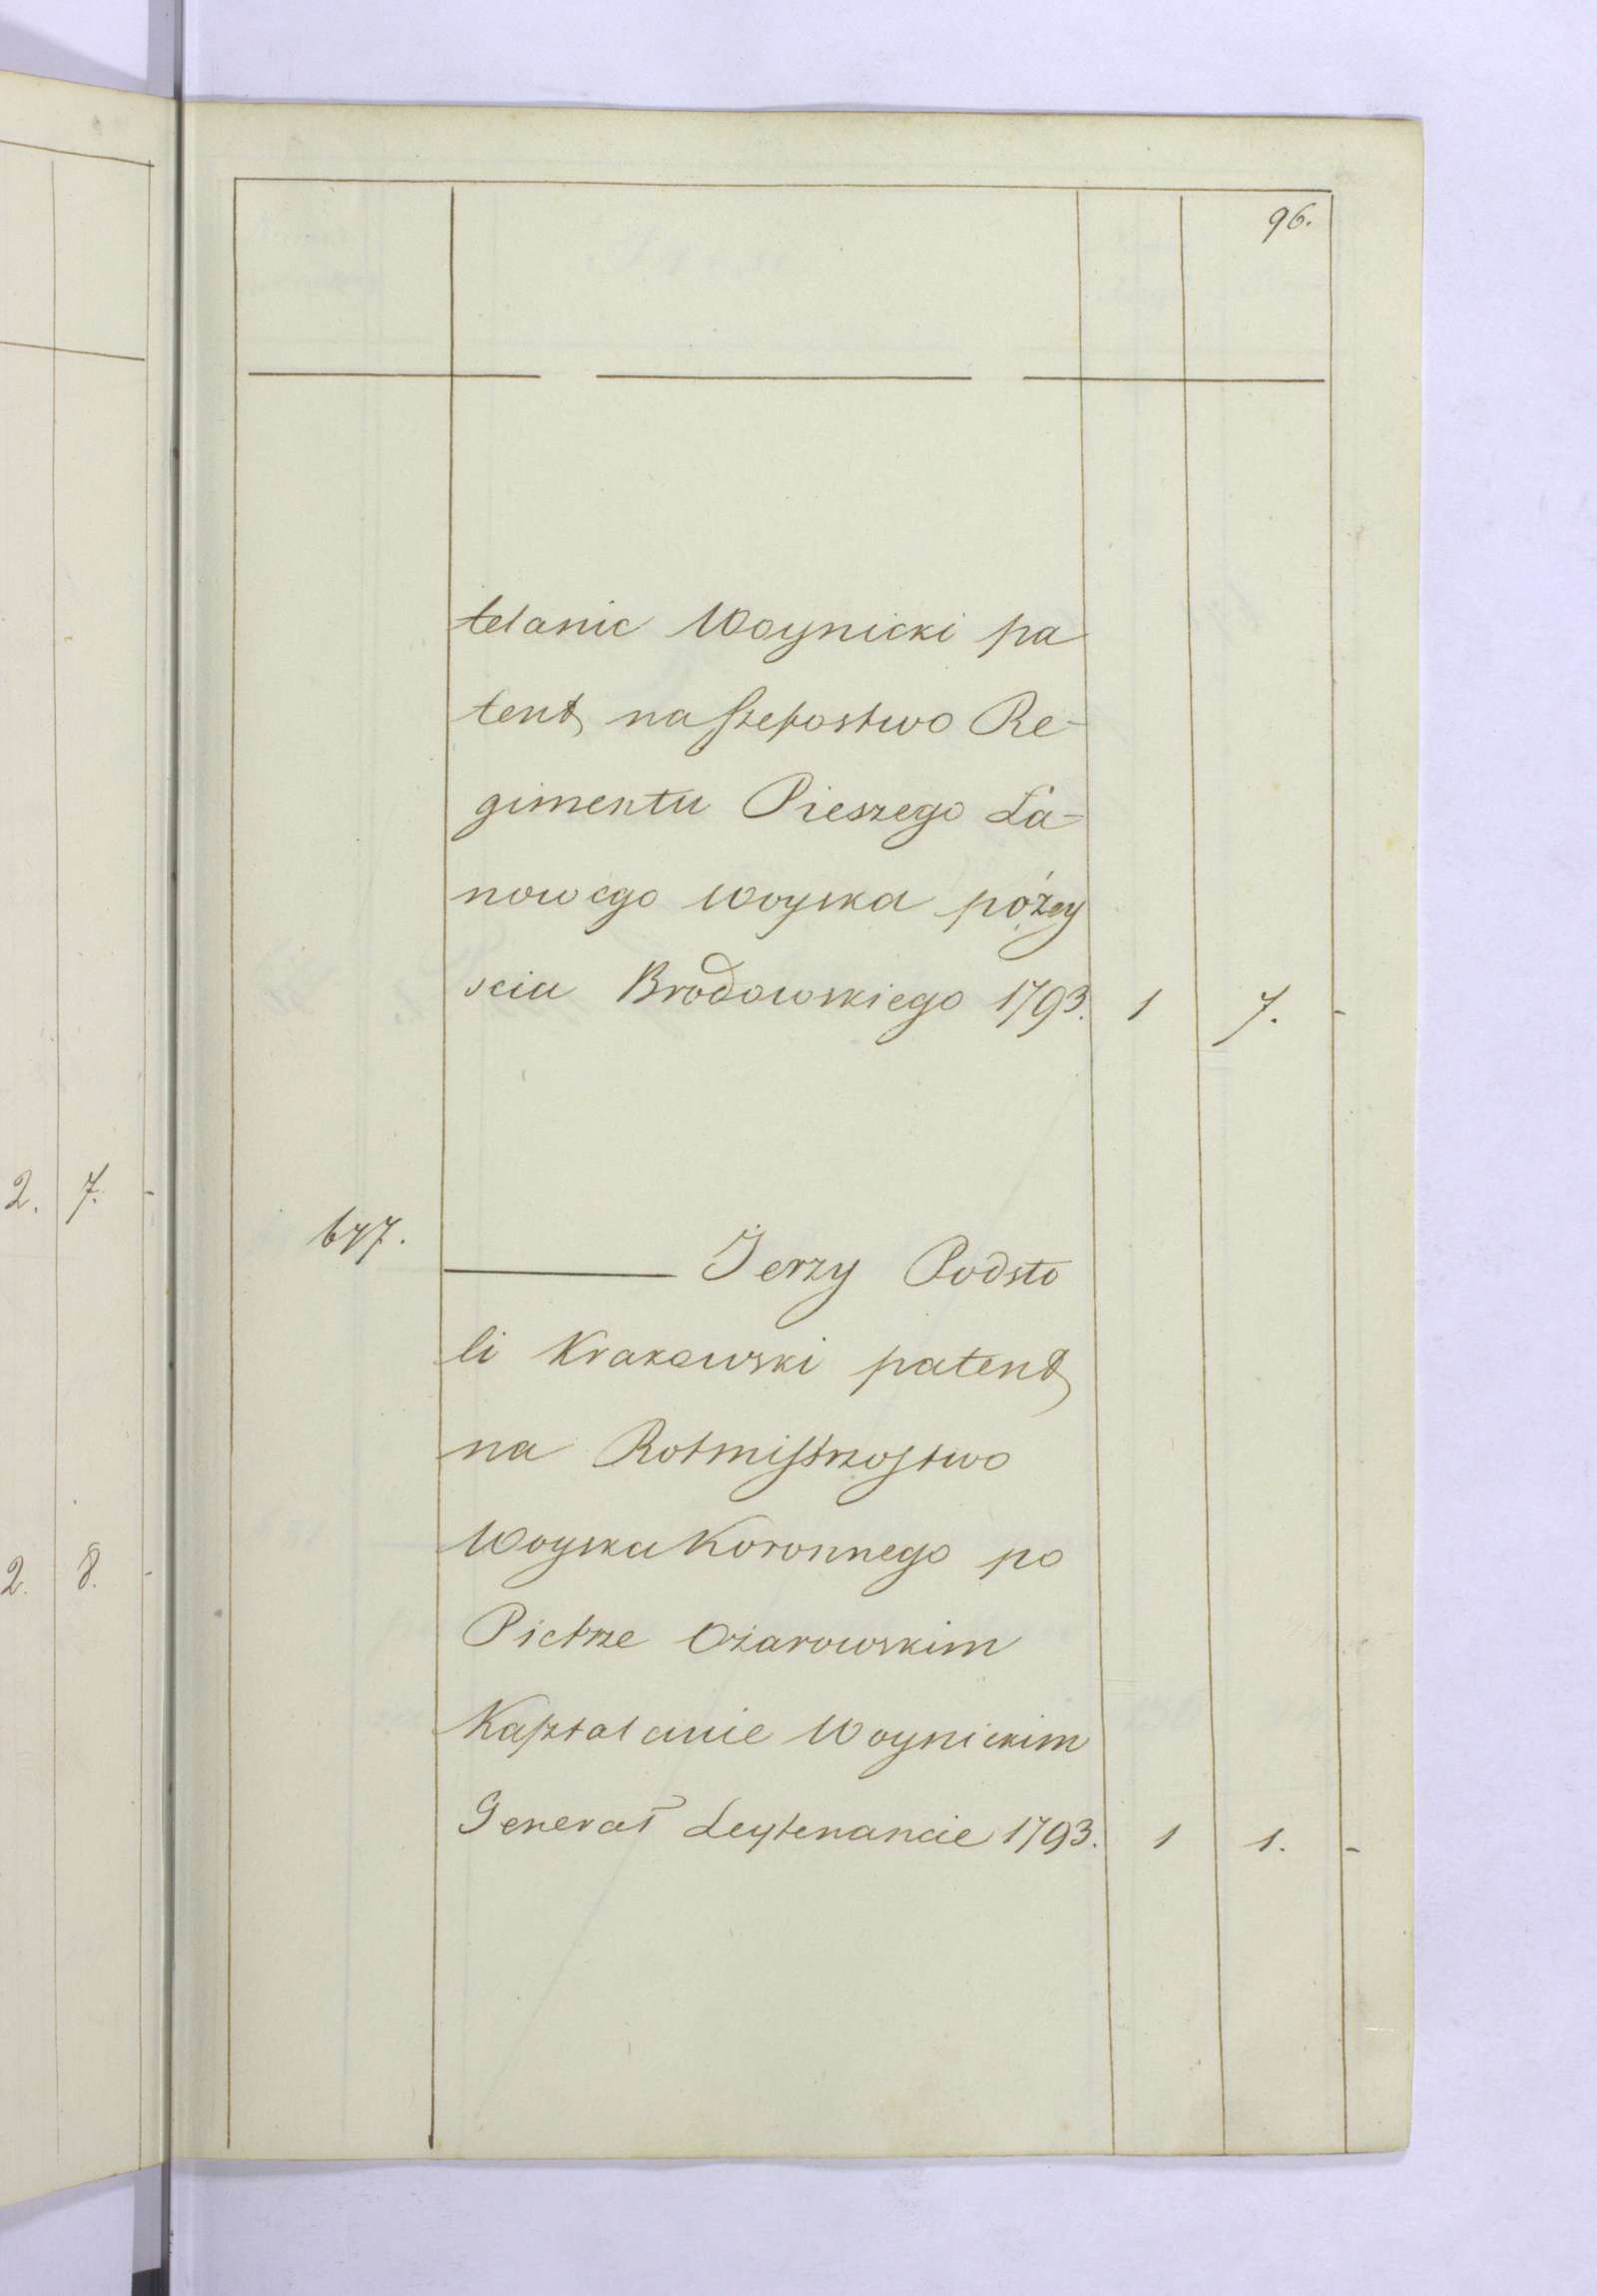 96.
telanic Woynicki pa
tent na Szefostwo Re-
gimentu Pieszego Ła-
nowego woyska pózey
scia Brodowskiego 1793. 1 7. -
2. 7. -
647. Jerzy Podsto
li Krakowski patent
na Rotmistrzostwo
Woyska Koronnego po
2. 8. -
Pietrze Ożarowskim
Kasztalanie Woynickim
Generał Leytenancie 1793. 1 1. -